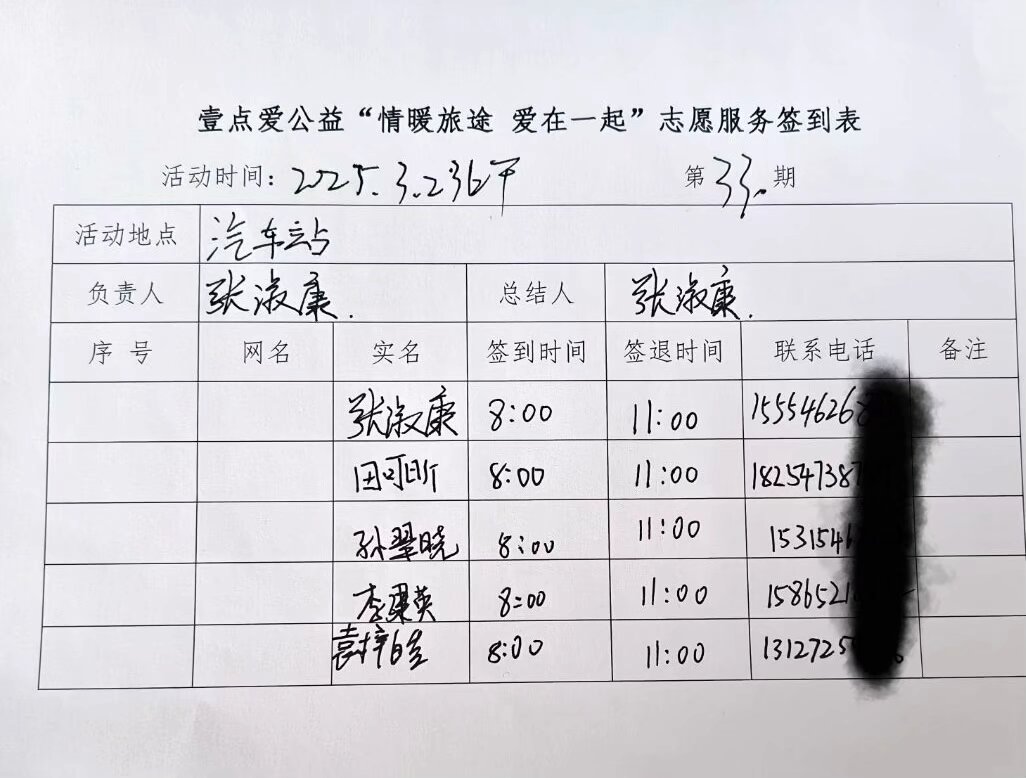 壹点爱公益“情暖旅途 爱在一起”志愿服务签到表
活动时间：2025.3.23下午 第33.期
活动地点 汽车站
负责人 张淑康. 总结人 张淑康.
序号 网名 实名 签到时间 签退时间 联系电话 备注
张淑康 8:00 11:00 15554626
田可昕 8:00 11:00 182547387
孙翠晓 8:00 11:00 1531546
李梁英 8:00 11:00 1586521
袁梓皓 8:00 11:00 1312725